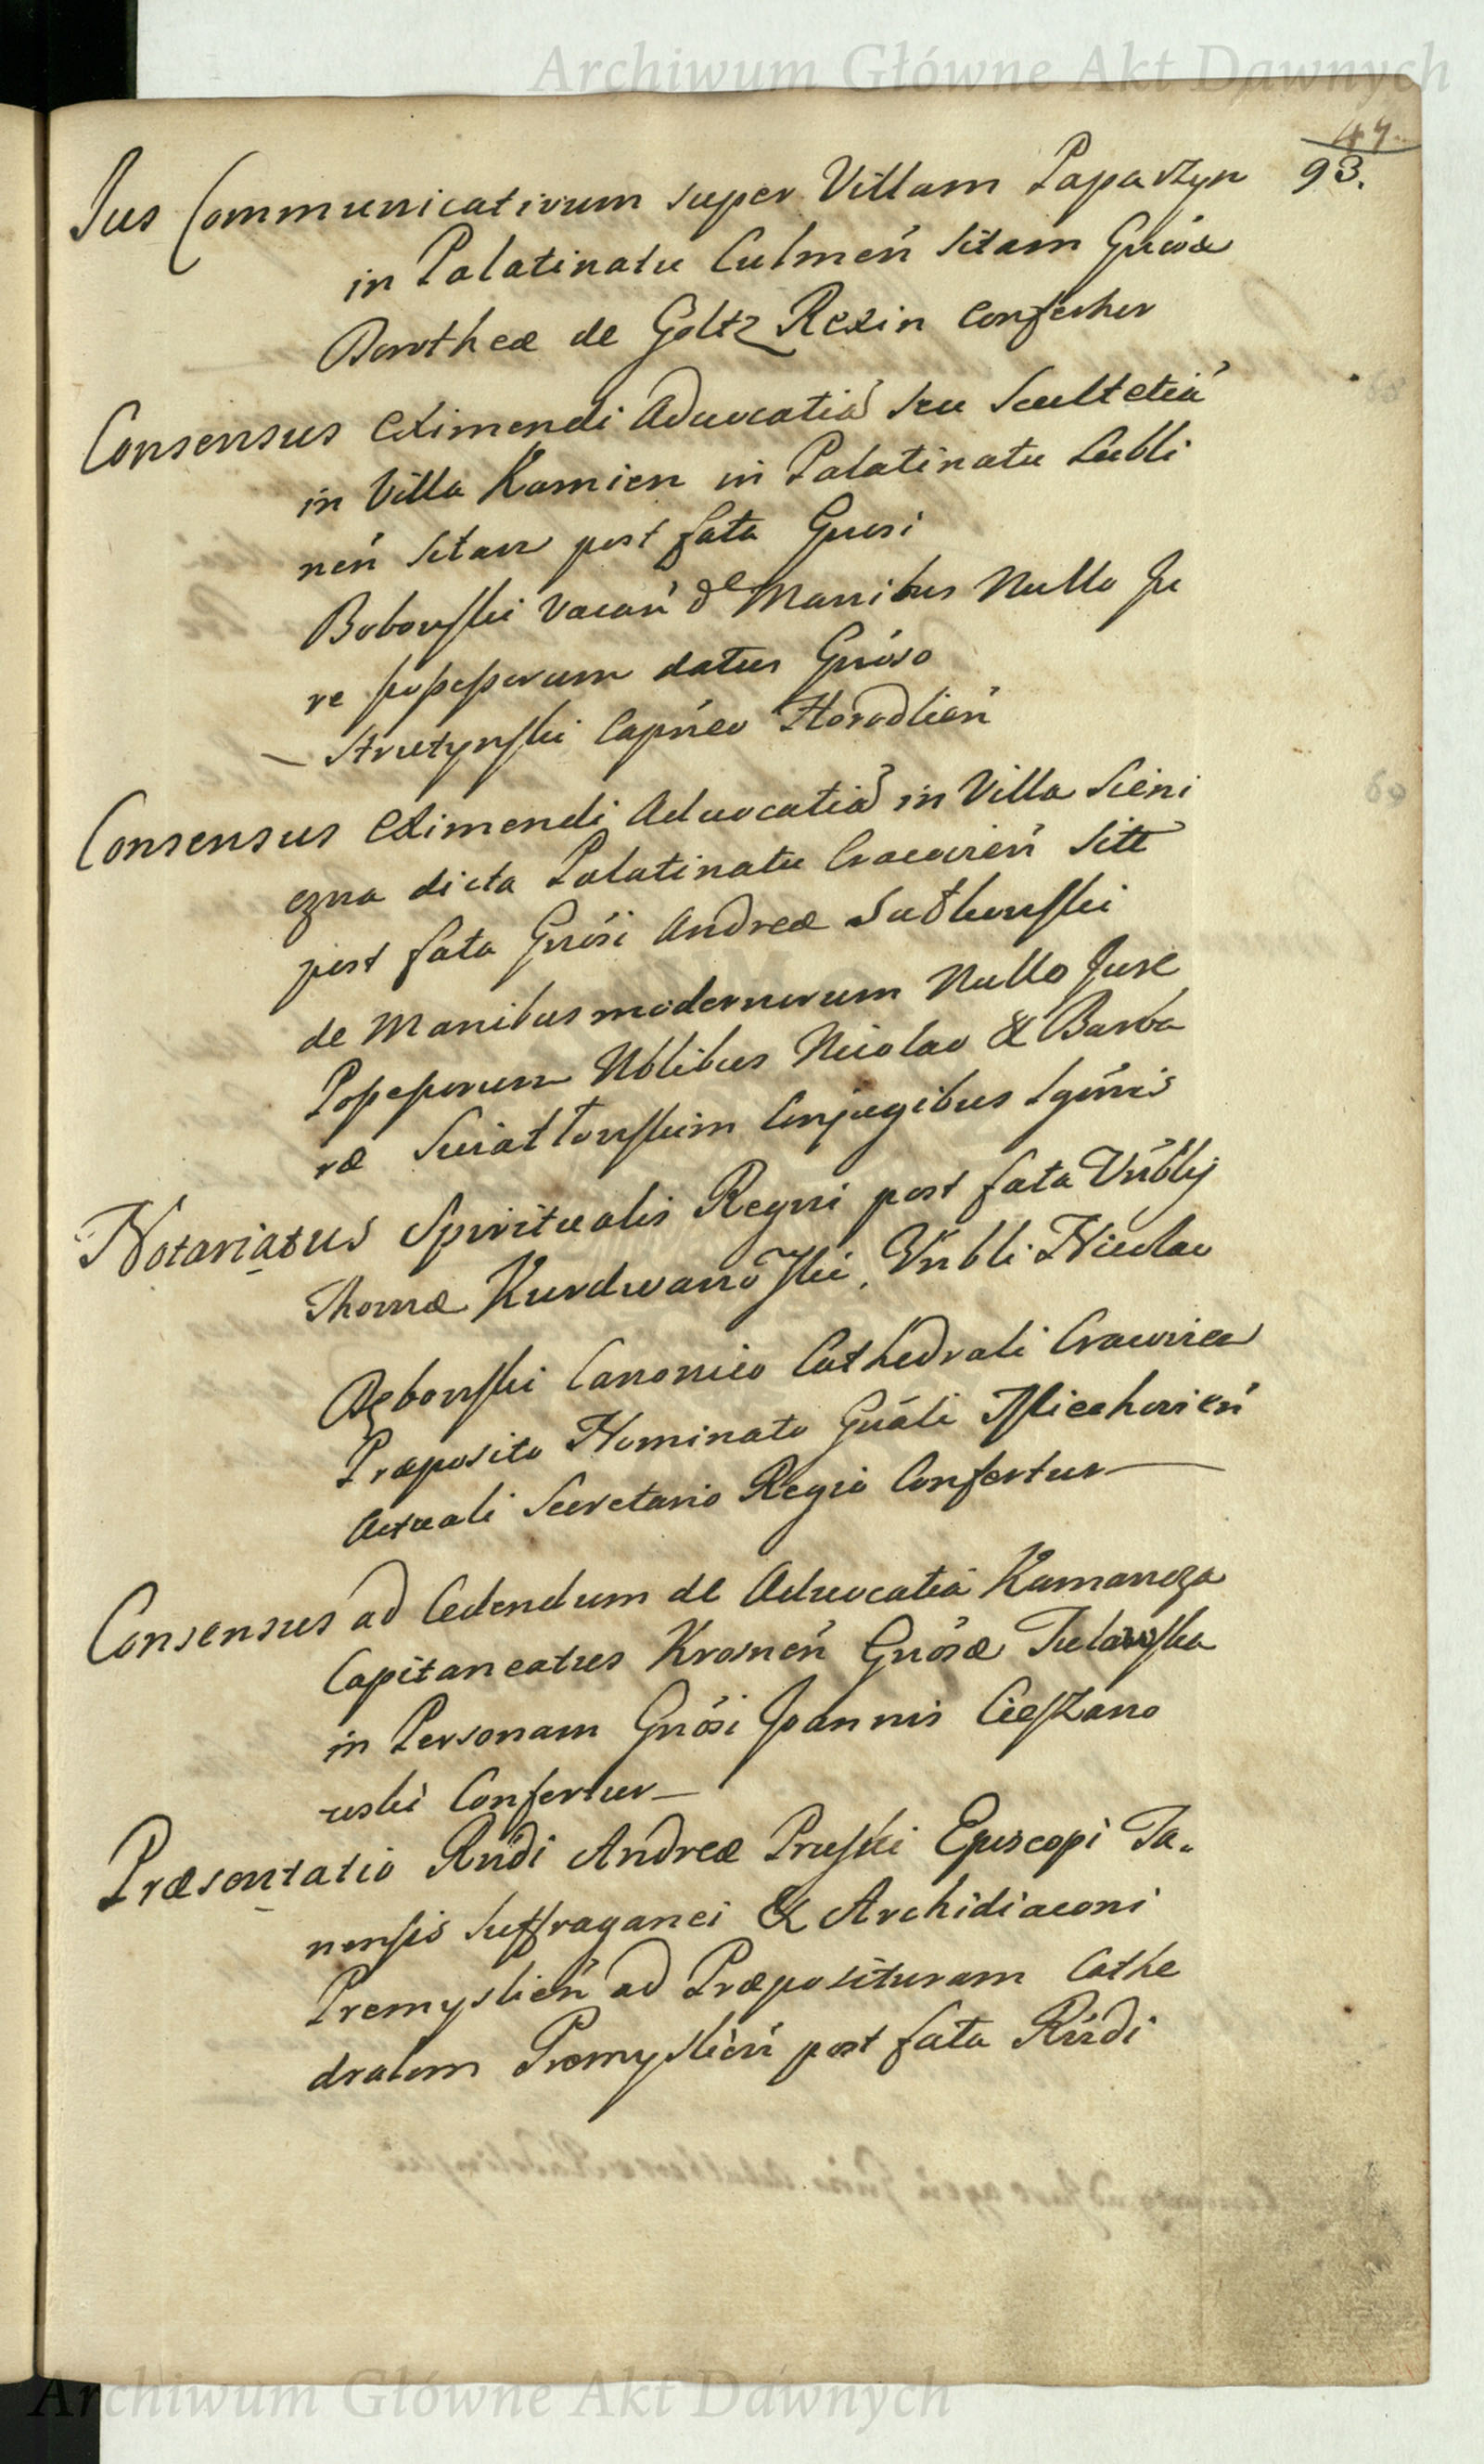 Archiwum Główne Akt Dawnych
47.
93.
Jus Communicativum super Villam Paparzyn
in Palatinatu Culmeń sitam Gńosæ
Dorotheæ de Goltz Rexin confertur
Consensus eximendi Advocatiã seu Scultetiã
in Villa Kamien in Palatinatu Lubli
neń sitam post fata Gnosi
Bobowski vacań de Manibus Nullo Ju
re possessorum datur Gńoso
Strutynski Capńeo Horodlień
Consensus eximendi Advocatiã in Villa Sieni
czna dicta Palatinatu Cracovień sitã
post fata Gńosi Andreæ Sutkowski
de Manibus modernorum Nullo Jure
Possessorum Nblibus Nicolao & Barba
ræ Swiattonskim Conjugibus
Notariatus Spiritualis Regni post fata
Thomæ Kurdwanoski, Nicolao
Dębowski Canonico Cathedrali Cracovien
Præposito Nominato Gńali Miechovień
Actuali Secretario Regio Confertur
Consensus ad Cedendum de Advocatia Kamancza
Capitaneatus Krosneń Gńosæ
in Personam Gńosi Joannis Cieszano
wski Confertur
Præsentatio Rńdi Andreæ Pruski Episcopi Ta-
nensis Suffraganei & Archidiaconi
Premyslień ad Præposituram Cathe
dralem Premyslień post fata Rńdi
Archiwum Główne Akt Dawnych